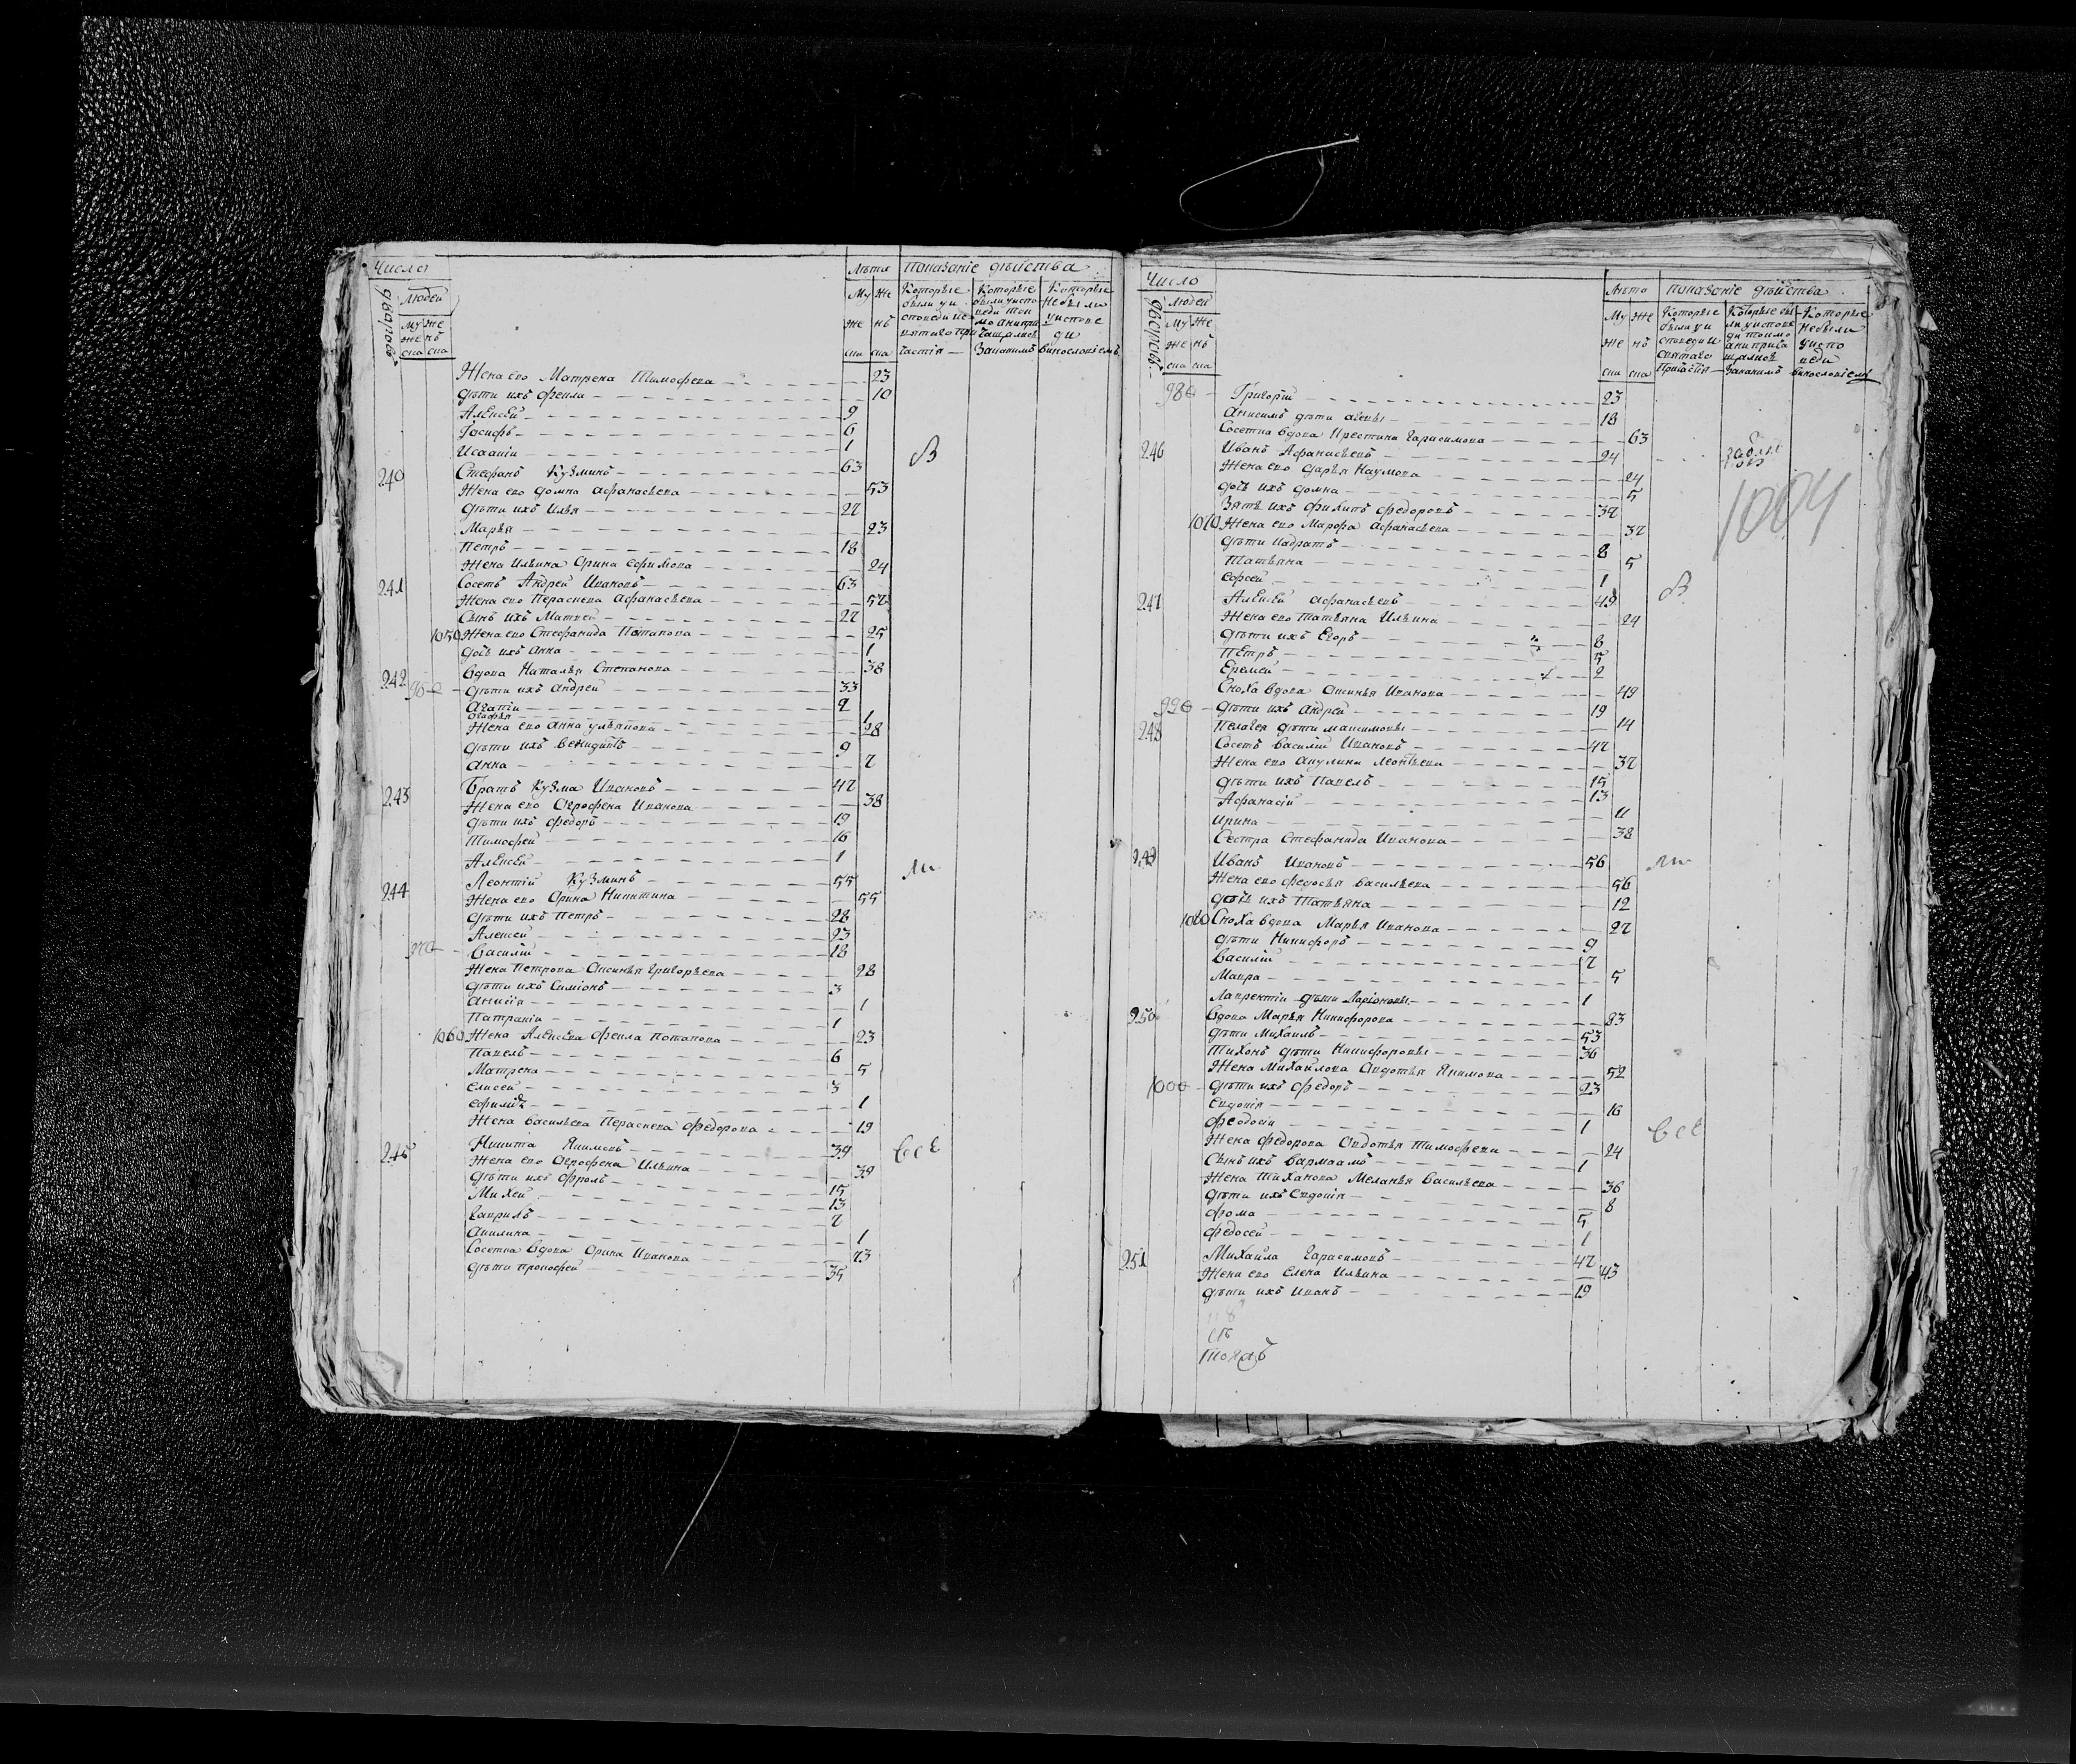 Число
дворовъ
людей
Муже нъ
же
ска ска
Лѣта
Показаніе дѣйства
Му Же
же нъ
ска ска
Которые были у исповеди и святаго причастія
Которые были у исповеди токмо а не причащались За какимъ
Которые не были у исповеди винословіемъ
Жена ево Матрена Тимофева 23
дѣти ихъ Фекла 10
Алексей 9
Iосифъ 6
Исаакіи 1
240 Стефанъ Кузминъ 63
Жена ево Домна Афанасьева 53
дѣти ихъ Илья 27
Марья 23
Петръ 18
Жена Ильина Орина Ефимова 24
241 Сосетъ Андрей Ивановъ 63
Жена ево Пераскева Афанасьева 57
Сынъ ихъ Матвей 27
1050 Жена ево Стефанида Потапова 25
дочь ихъ Анна 1
242 вдова Наталья Степанова 38
960 дѣти ихъ Андрей 33
Агапіи 9
Агафья 1
Жена ево Анна Ульянова 28
дѣти ихъ Венидиктъ 9
Анна 7
243 Братъ Кузма Ивановъ 47
Жена ево Огрофена Иванова 38
дѣти ихъ Федоръ 19
Тимофей 16
Алексей 1
244 Леонтій Кузминъ 55
Жена ево Орина Никитина 55
дѣти ихъ Петръ 28
Алексей 23
970 Василій 18
Жена Петрова Оксинья Григорьева 28
дѣти ихъ Симіонъ 3
Анисія 1
Патракіи 1
1060 Жена Алексева Фекла Потапова 23
Павелъ 6
Матрена 5
Елисей 3
1
Жена Васильева Пераскева Федорова 19
245 Никита Якимовъ 39
Жена ево Огрофена Ильина 39
дѣти ихъ Фролъ 15
Михей 13
Гаврилъ 7
Акилина 1
Сосетка вдова Орина Иванова 73
дѣти Прокофей 35
В
ли
всѣ
Число
дворовъ
людей
Му Же
же нъ
ска ска
Лѣта
показаніе дѣйства
Му Же
же нъ
ска ска
Которые были у исповеди и святаго Причастія
Которые были у исповеди токмо а не причащались За какимъ
Которые не были у исповеди винословіемъ
980 Григорій 23
Анисимъ дѣти 18
Сосетка вдова Ирестина Гарасимова 63
246 Иванъ Афанасьевъ 24
Жена ево Дарья Наумова 24
дочь ихъ Домна 5
Зять ихъ Филипъ Федоровъ 37
1070 Жена ево Марфа Афанасьева 37
дѣти Кадратъ 8
Татьяна 5
Ефсей 1
247 Алексей Афанасьевъ 49
Жена ево Татьяна Ильина 24
дѣти ихъ Егоръ 8
Петръ 5
Еремей 2
Сноха вдова Оксинья Иванова 49
990 дѣти ихъ Андрей 19
Пелагея дѣти Максимовы 14
248 Сосетъ Василій Ивановъ 47
Жена ево Акулина Леонтьева 37
дѣти ихъ Павелъ 15
Афанасій 13
Ирина 11
Сестра Стефанида Иванова 38
249 Иванъ Ивановъ 56
Жена ево Федосья Васильева 56
дочь ихъ Татьяна 12
1080 Сноха вдова Марья Иванова 27
дѣти Никифоръ 9
Василій 7
Мавра 5
Лаврентіи дѣти Ларіоновы 1
250 вдова Марья Никифорова 83
дѣти Михаилъ 53
Тихонъ дѣти Никифоровы 36
Жена Михайлова Овдотья Якимова 52
1000 дѣти ихъ Федоръ 23
Евдокія 16
Феодосіи 1
Жена Федорова Овдотья Тимофеева 24
Сынъ ихъ Вармаамъ 1
Жена Тихонова Меланья Васильева 36
дѣти ихъ Евдокія 8
Фома 5
Федосей 1
251 Михайла Гарасимовъ 47
Жена ево Елена Ильина 43
дѣти ихъ Иванъ 19
1004
В
ли
всѣ